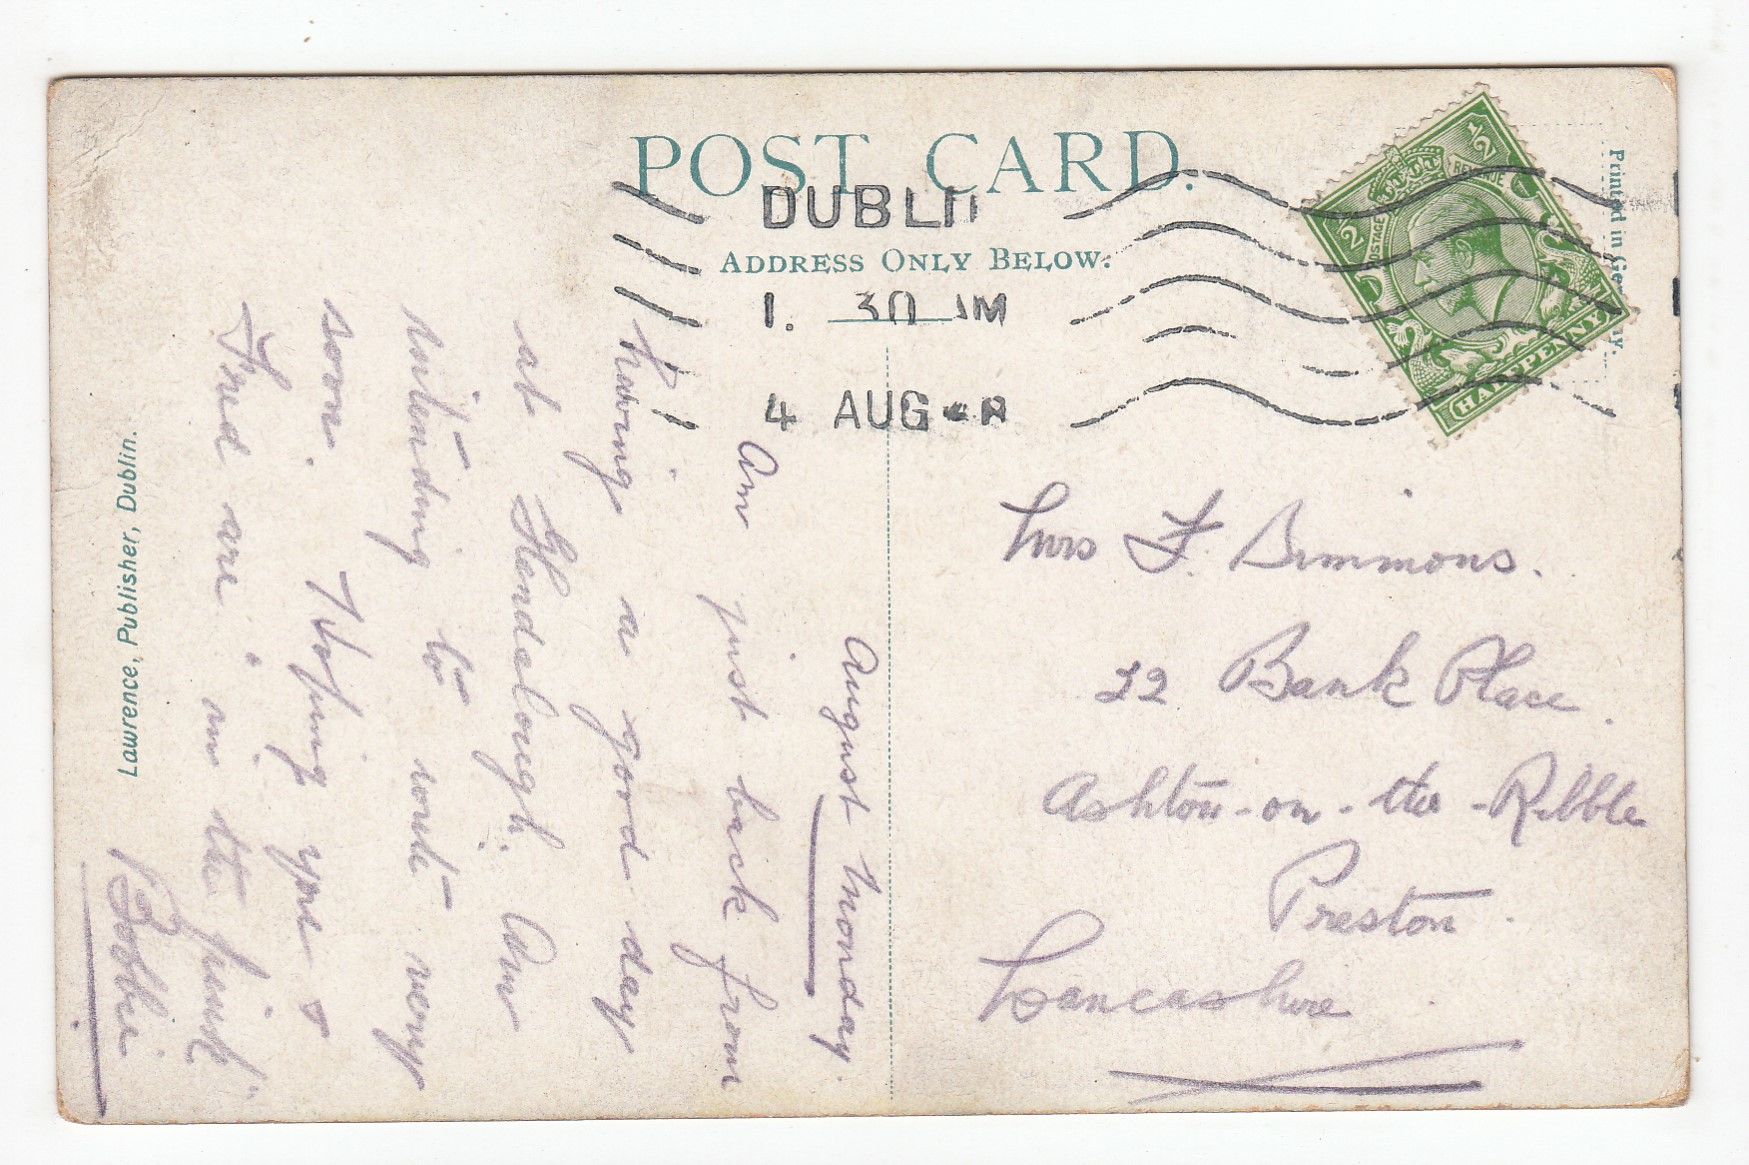 POST CARD.
DUBLI
ADDRESS ONLY BELOW.
1. 30 AM
4 AUG
Printed in Ge ny.
POSTAGE
REVENUE
1/2
1/2
HALFPENNY
Mrs F. Simmons.
22 Bank Place.
Ashton-on-the-Ribble
Preston.
Lancashire
August Monday.
Am just back from
having a good day
at Glendalough. Am
intending to write very
soon. Hoping you &
Fred are "in the pink"
Bobbie
Lawrence, Publisher, Dublin.